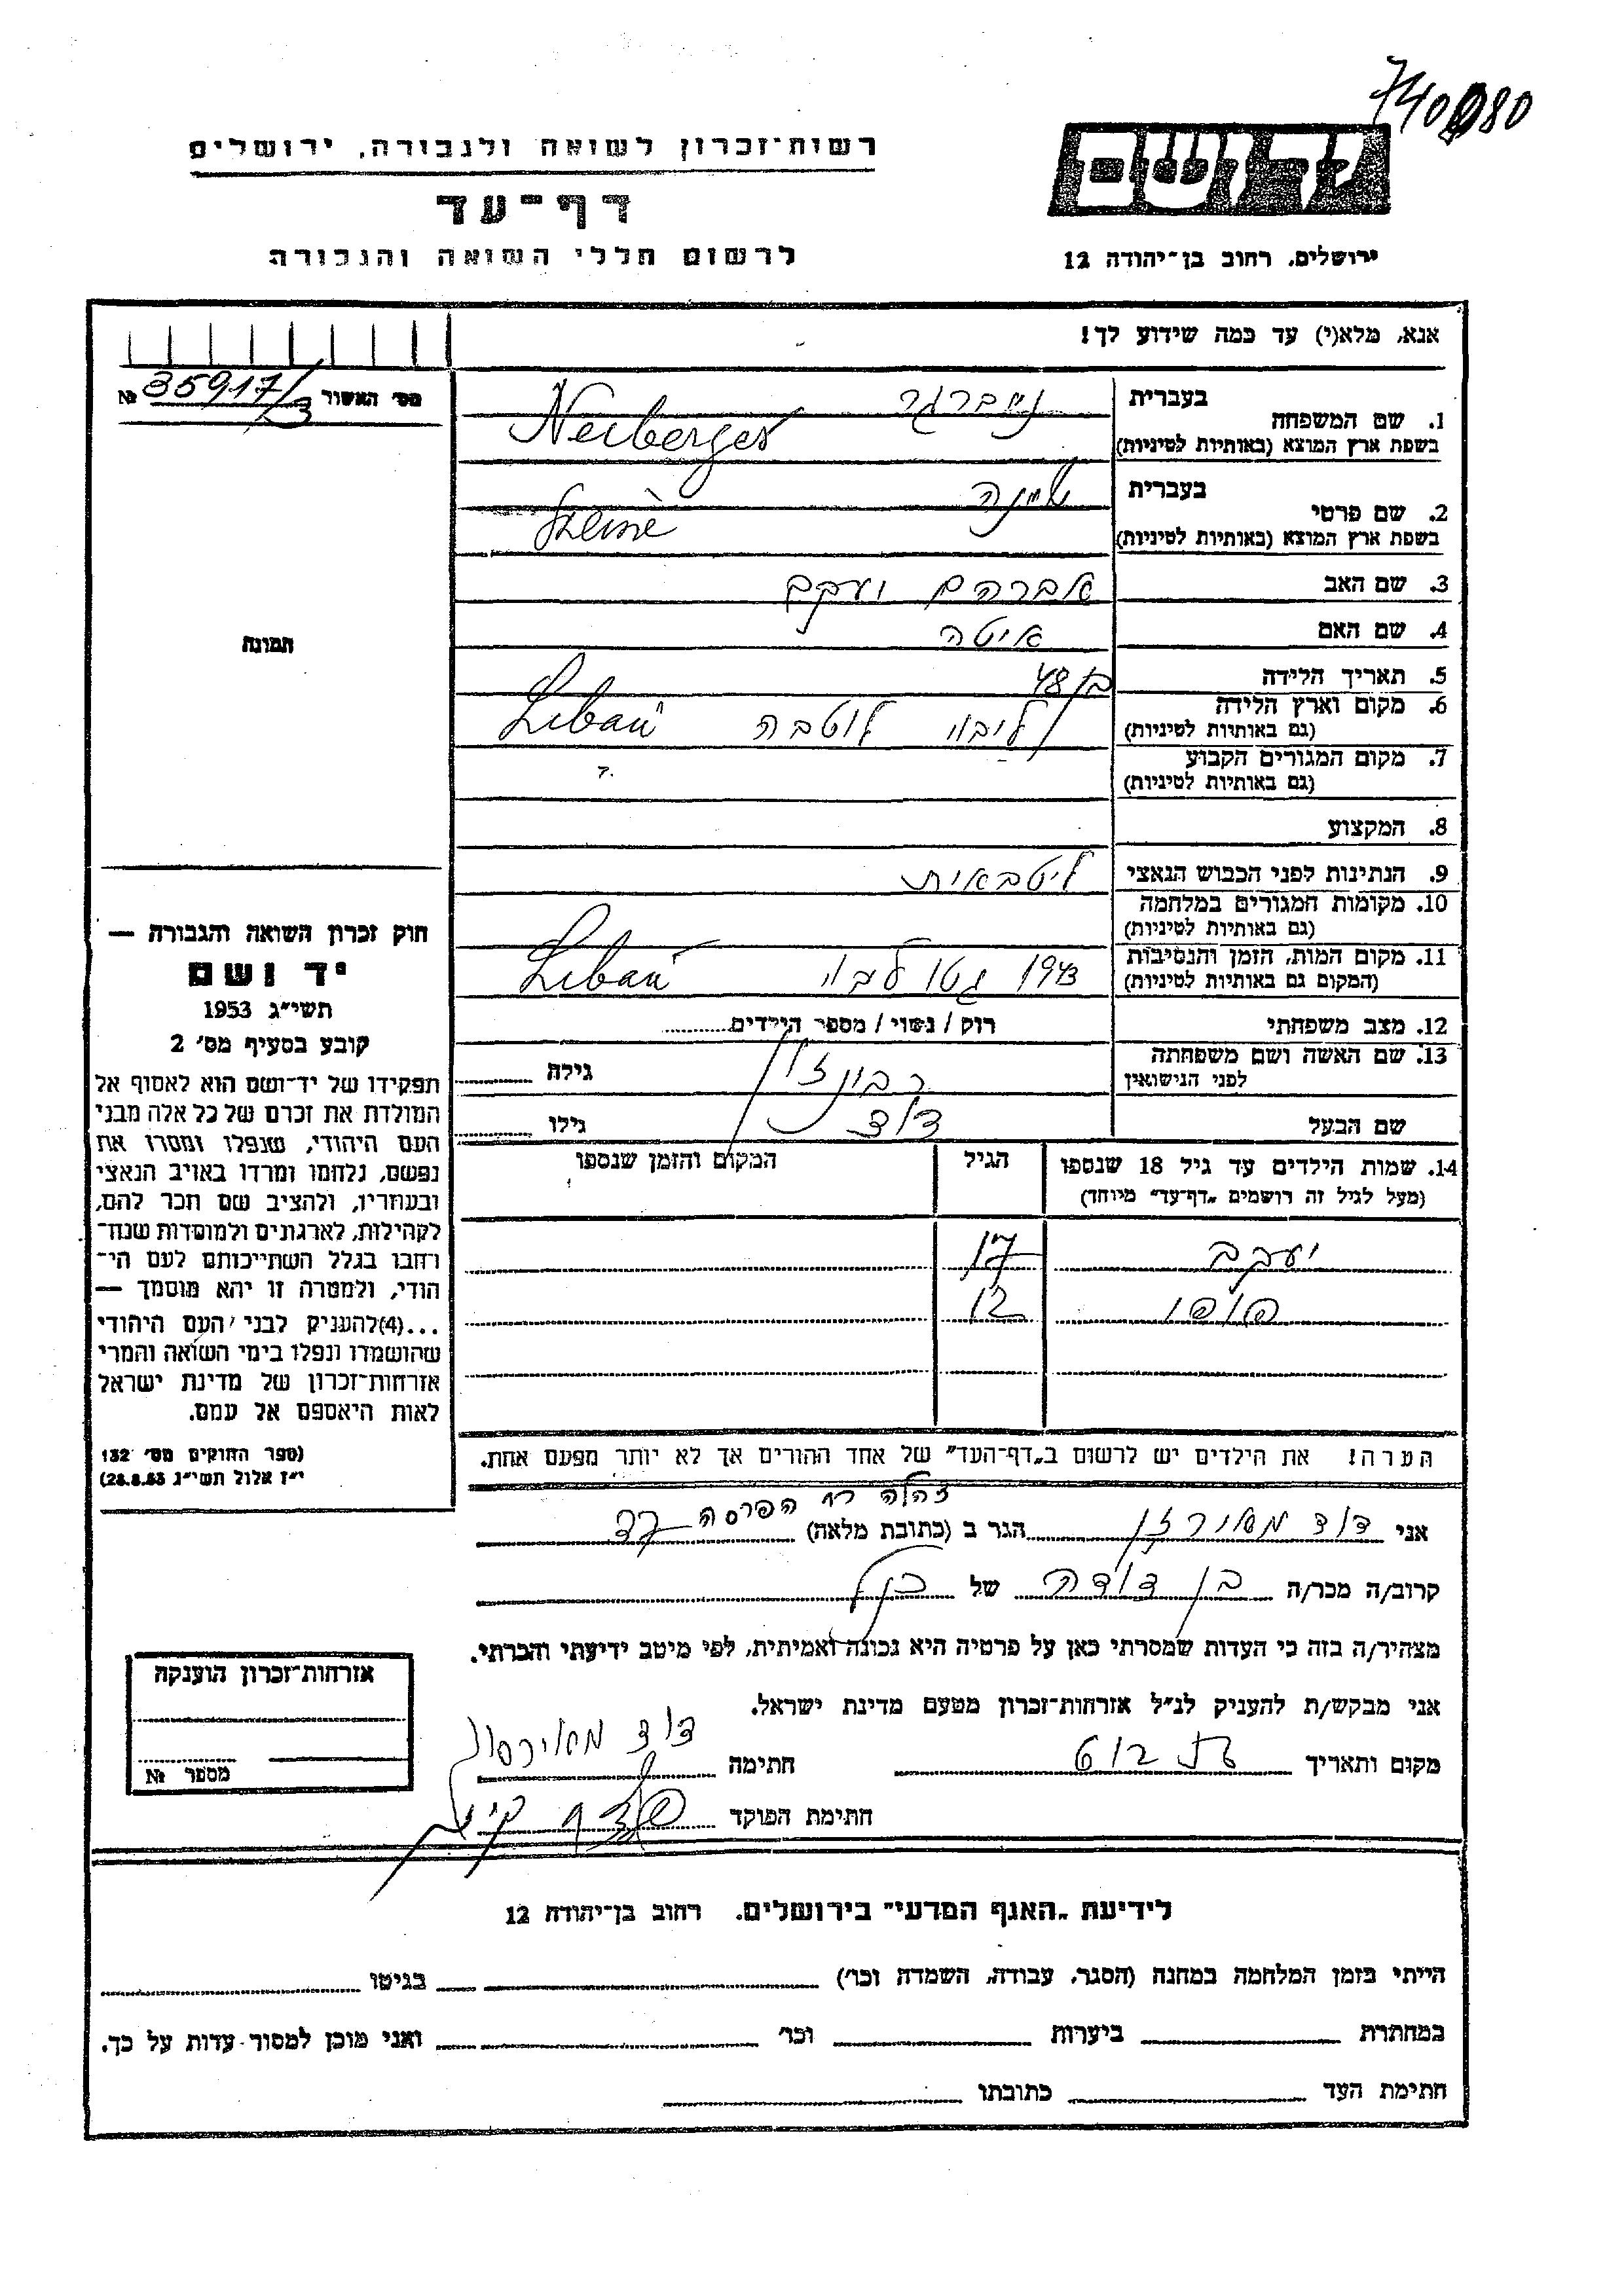 740980
יד ושם
רשות־זכרון לשואה ולגבורה, ירושלים
דף־עד
לרשום חללי השואה והגבורה
ירושלים, רחוב בן־יהודה 12
אנא, מלא(י) עד כמה שידוע לך!
מס' האשור 35917/3 №
תמונה
1. שם המשפחה
בעברית נייברגר
בשפת ארץ המוצא (באותיות לטיניות) Neiberger
2. שם פרטי
בעברית שיינה
בשפת ארץ המוצא (באותיות לטיניות)
3. שם האב אברהם יעקב
4. שם האם איטה
5. תאריך הלידה בן 48
6. מקום וארץ הלידה ליבוי לוטביה Libau
(גם באותיות לטיניות)
7. מקום המגורים הקבוע
(גם באותיות לטיניות)
8. המקצוע
9. הנתינות לפני הכבוש הנאצי ליטבאית
10. מקומות המגורים במלחמה
(גם באותיות לטיניות)
11. מקום המות, הזמן והנסיבות 1943 גטו ליבוי Libau
(המקום גם באותיות לטיניות)
12. מצב משפחתי רוק / נשוי / מספר הילדים
13. שם האשה ושם משפחתה
לפני הנישואין גילה
שם הבעל דוד גילו
14. שמות הילדים עד גיל 18 שנספו הגיל המקום והזמן שנספו
(מעל לגיל זה רושמים „דף־עד" מיוחד)
יעקב 17
12
הערה! את הילדים יש לרשום ב„דף־העד" של אחד ההורים אך לא יותר מפעם אחת.
חוק זכרון השואה והגבורה —
יד ושם
תשי"ג 1953
קובע בסעיף מס' 2
תפקידו של יד־ושם הוא לאסוף אל
המולדת את זכרם של כל אלה מבני
העם היהודי, שנפלו ומסרו את
נפשם, נלחמו ומרדו באויב הנאצי
ובעוזריו, ולהציב שם וזכר להם,
לקהילות, לארגונים ולמוסדות שנח־
רחבו בגלל השתייכותם לעם הי־
הודי, ולמטרה זו יהא מוסמך —
...(4) להעניק לבני העם היהודי
שהושמדו ונפלו בימי השואה והמרי
אזרחות־זכרון של מדינת ישראל
לאות היאספם אל עמם.
(ספר החוקים מס' 132
י"ז אלול תשי"ג 28.8.53)
צהלה רח הפרסה
אני דוד מאירזון הגר ב (כתובת מלאה)
קרוב/ה מכר/ה בן דודה של
מצהיר/ה בזה כי העדות שמסרתי כאן על פרטיה היא נכונה ואמיתית, לפי מיטב ידיעתי והכרתי.
אני מבקש/ת להעניק לנ"ל אזרחות־זכרון מטעם מדינת ישראל.
מקום ותאריך חתימה דוד מאירסון
חתימת הפוקד
אזרחות־זכרון הוענקה
מספר №
לידיעת „האגף המדעי" בירושלים. רחוב בן־יהודה 12
הייתי בזמן המלחמה במחנה (הסגר, עבודה, השמדה וכו') בגיטו
במחתרת ביערות וכו' ואני מוכן למסור עדות על כך.
חתימת העד כתובתו